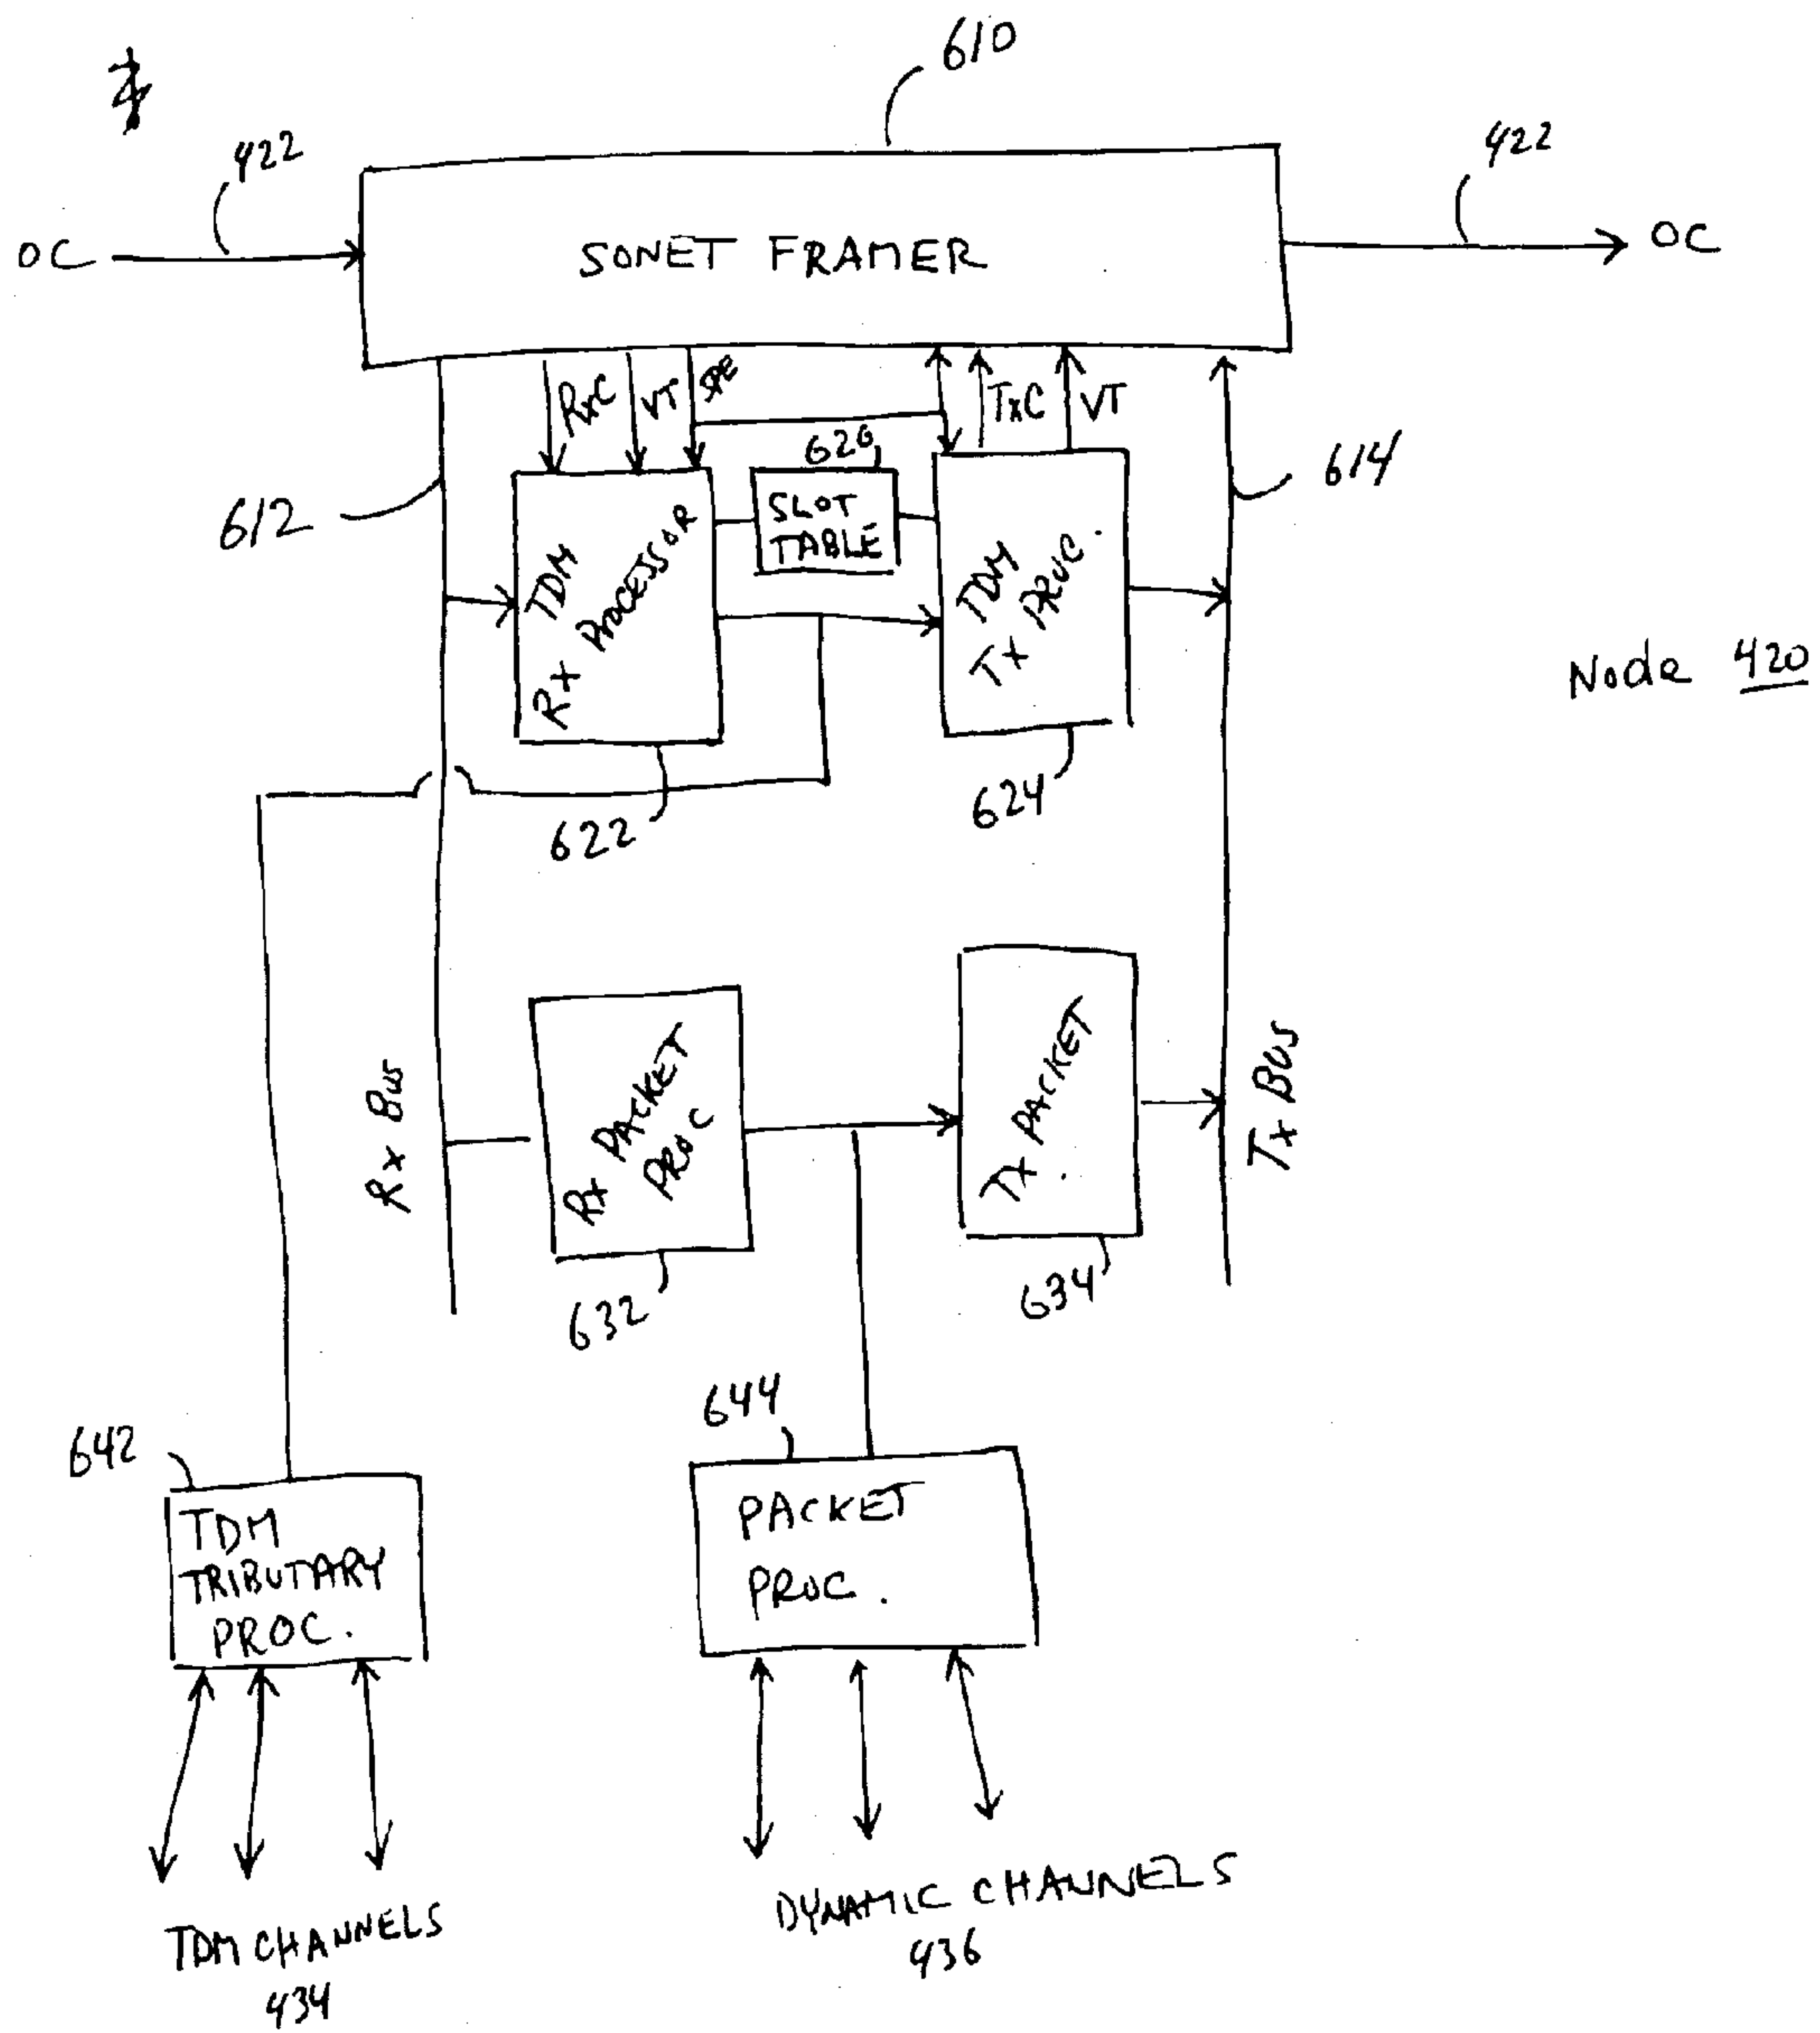 610
422
422
OC
SONET FRAMER
OC
RxC
VT
SPE
TxC
VT
620
612
614
SLOT
TABLE
TDM
Rx PROCESSOR
TDM
Tx PROC.
Node 420
622
624
Rx Bus
Rx PACKET
PROC
Tx PACKET
Tx BUS
632
634
642
644
TDM
TRIBUTARY
PROC.
PACKET
PROC.
TDM CHANNELS
434
DYNAMIC CHANNELS
436